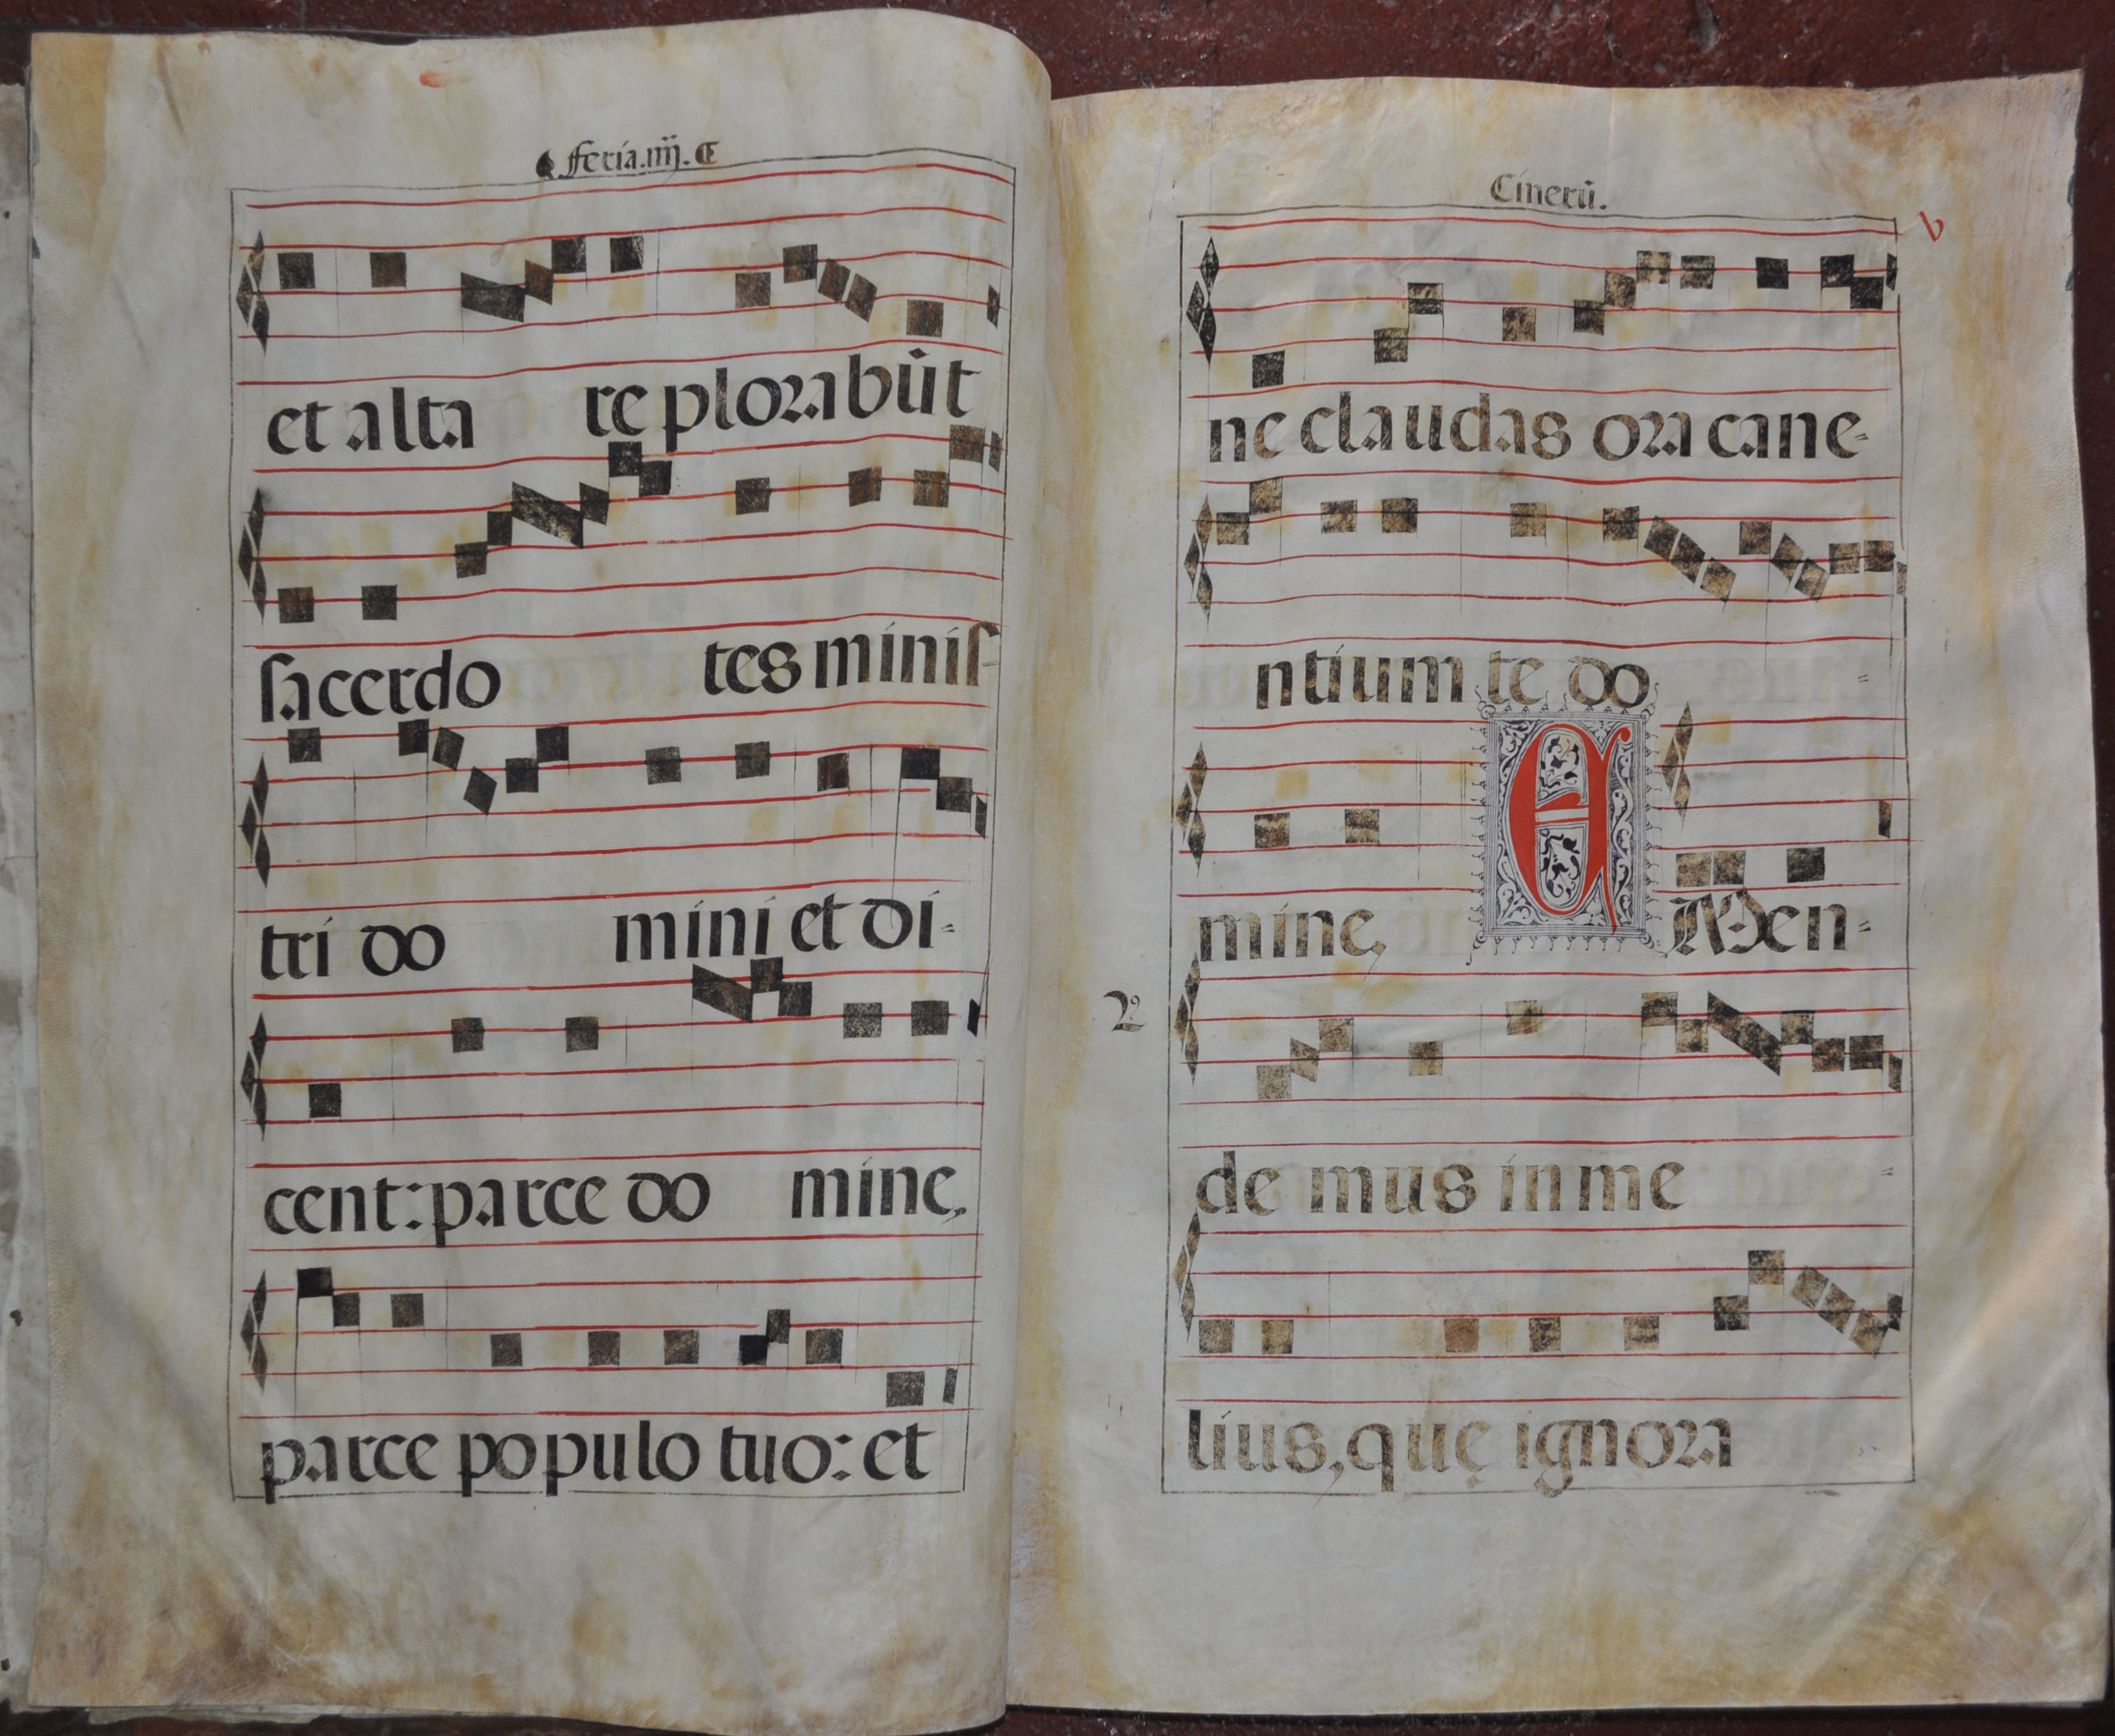 feria.iiij. C
et alta re plorabūt
sacerdo tes minis
tri do mini et di-
cent: parce do mine,
parce populo tuo: et
Cinerū.
v
ne claudas ora cane-
ntium te do
mine, EMen-
2
de mus in me
lius, quę ignora